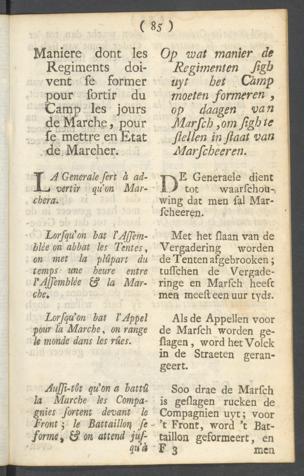 ( 85 )
Maniere dont les
Regiments doi-
vent se former
pour sortir du
Camp les jours
de Marche, pour
se mettre en Etat
de Marcher.
LA Generale sert à ad-
vertir qu'on Mar-
chera.
Lorsqu'on bat l'Assem-
blée on abbat les Tentes,
on met la plûpart du
temps une heure entre
l'Assemblée & la Mar-
che.
Lorsqu'on bat l'Appel
pour la Marche, on range
le monde dans les rües.
Aussi-tôt qu'on a battû
la Marche les Compa-
gnies sortent devant le
Front; le Battaillon se
forme, & on attend jus-
qu'à
Op wat manier de
Regimenten sigh
uyt het Camp
moeten formeren,
op daagen van
Marsch, om sigh te
stellen in staat van
Marscheeren.
DE Generaele dient
tot waarschou-
wing dat men sal Mar-
scheeren.
Met het slaan van de
Vergadering worden
de Tenten afgebrooken;
tusschen de Vergade-
ringe en Marsch heeft
men meest een uur tyds.
Als de Appellen voor
de Marsch worden ge-
slagen, word het Volck
in de Straeten geran-
geert.
Soo drae de Marsch
is geslagen rucken de
Compagnien uyt; voor
't Front, word 't Bat-
taillon geformeert, en
F 3 men